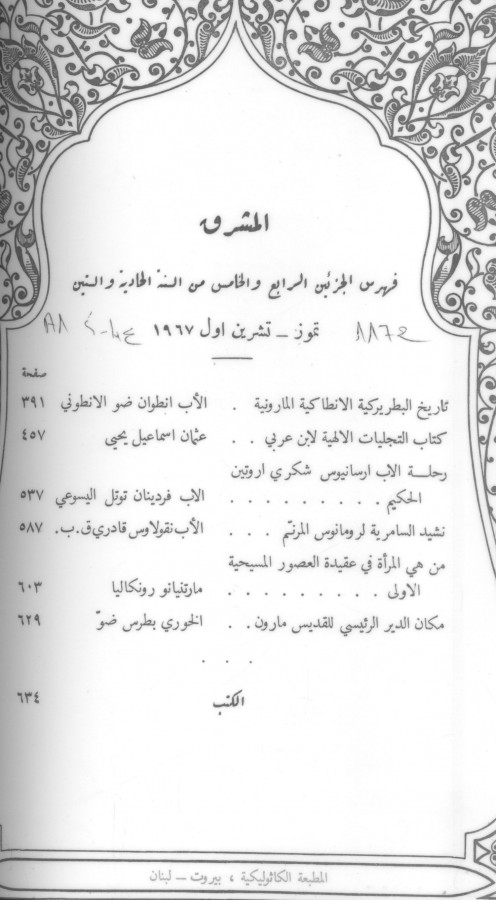 المشرق
فهرس الجزئين الرابع والخامس من السنة الحادية والستين
تموز – تشرين اول ١٩٦٧
صفحة
تاريخ البطريركية الانطاكية المارونية . الأب انطوان ضو الانطوني ٣٩١
كتاب التجليات الالهية لابن عربي . . عثمان اسماعيل يحيى ٤٥٧
رحلة الاب ارسانيوس شكري اروتين
الحكيم . . . . . . . . . الاب فردينان توتل اليسوعي ٥٣٧
نشيد السامرية لرومانوس المرنّم . . . الأب نقولاوس قادري ق. ب. ٥٨٧
من هي المرأة في عقيدة العصور المسيحية
الاولى . . . . . . . . . مارتنيانو رونكاليا ٦٠٣
مكان الدير الرئيسي للقديس مارون . . الخوري بطرس ضوّ ٦٢٩
. . .
الكتب ٦٣٤
المطبعة الكاثوليكية ، بيروت – لبنان